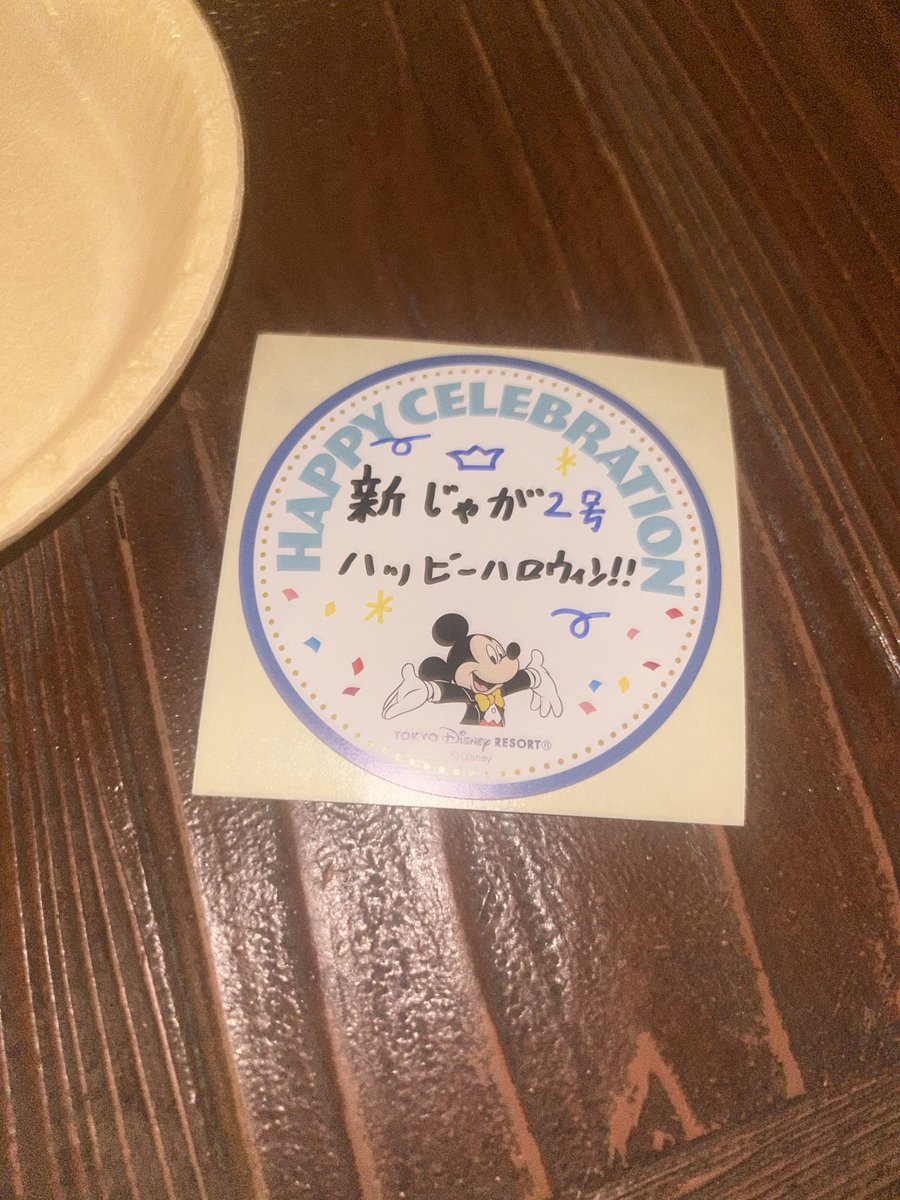 HAPPY CELEBRATION
新じゃが2号
ハッピーハロウィン!!
TOKYO Disney RESORT®
©Disney